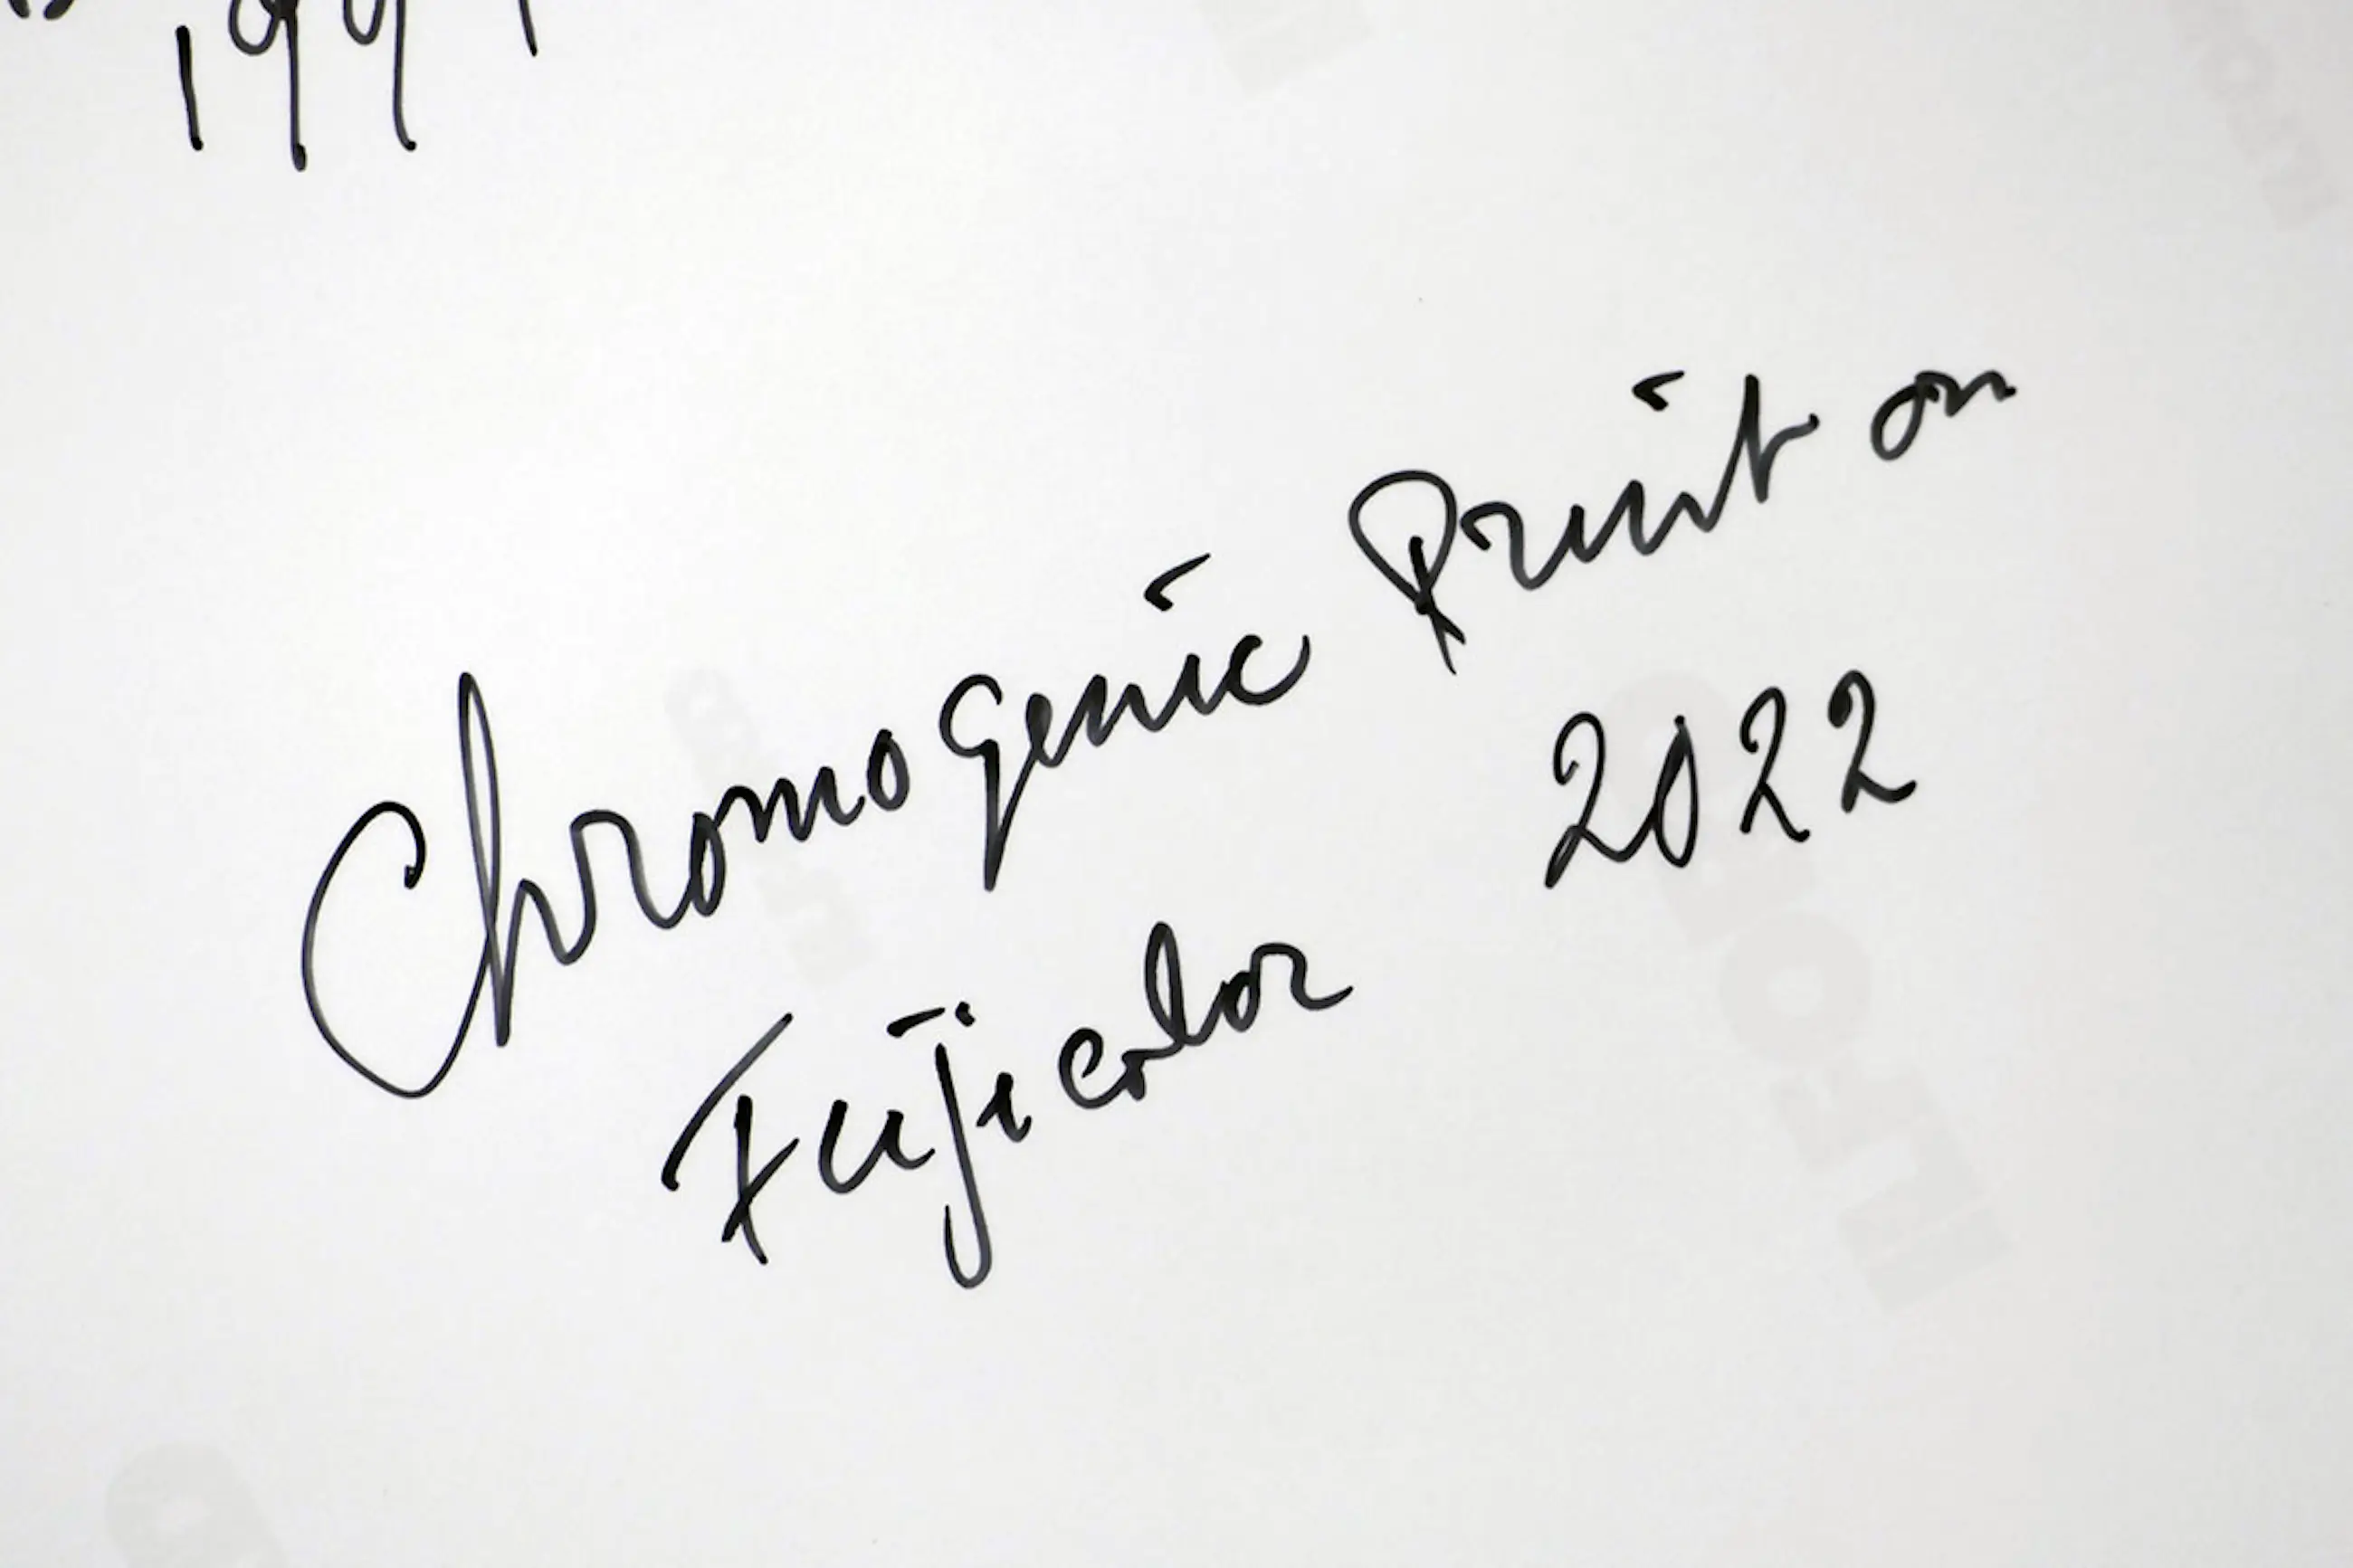 Chromogenic Print on
Fujicolor 2022